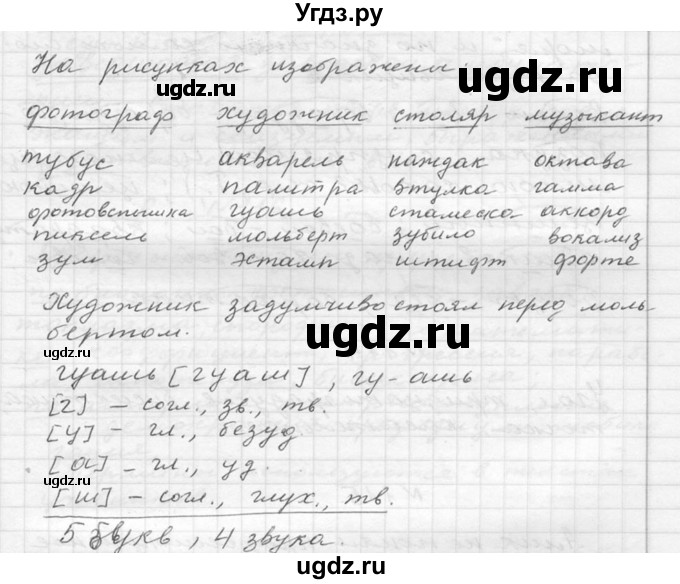 Угдз.ру
На рисунках изображены:
фотограф художник столяр музыкант
тубус акварель наждак октава
кадр палитра втулка гамма
фотовспышка гуашь стамеска аккорд
пиксель мольберт зубило вокализ
зум эстамп штифт форте
Художник задумчиво стоял перед моль-
бертом.
гуашь [гуаш], гу-ашь
[г] – согл., зв., тв.
[у] – гл., безуд.
[а] – гл., уд.
[ш] – согл., глух., тв.
5 букв, 4 звука.
ugdz.ru
ugdz.ru
ugdz.ru
ugdz.ru
ugdz.ru
ugdz.ru
ugdz.ru
ugdz.ru